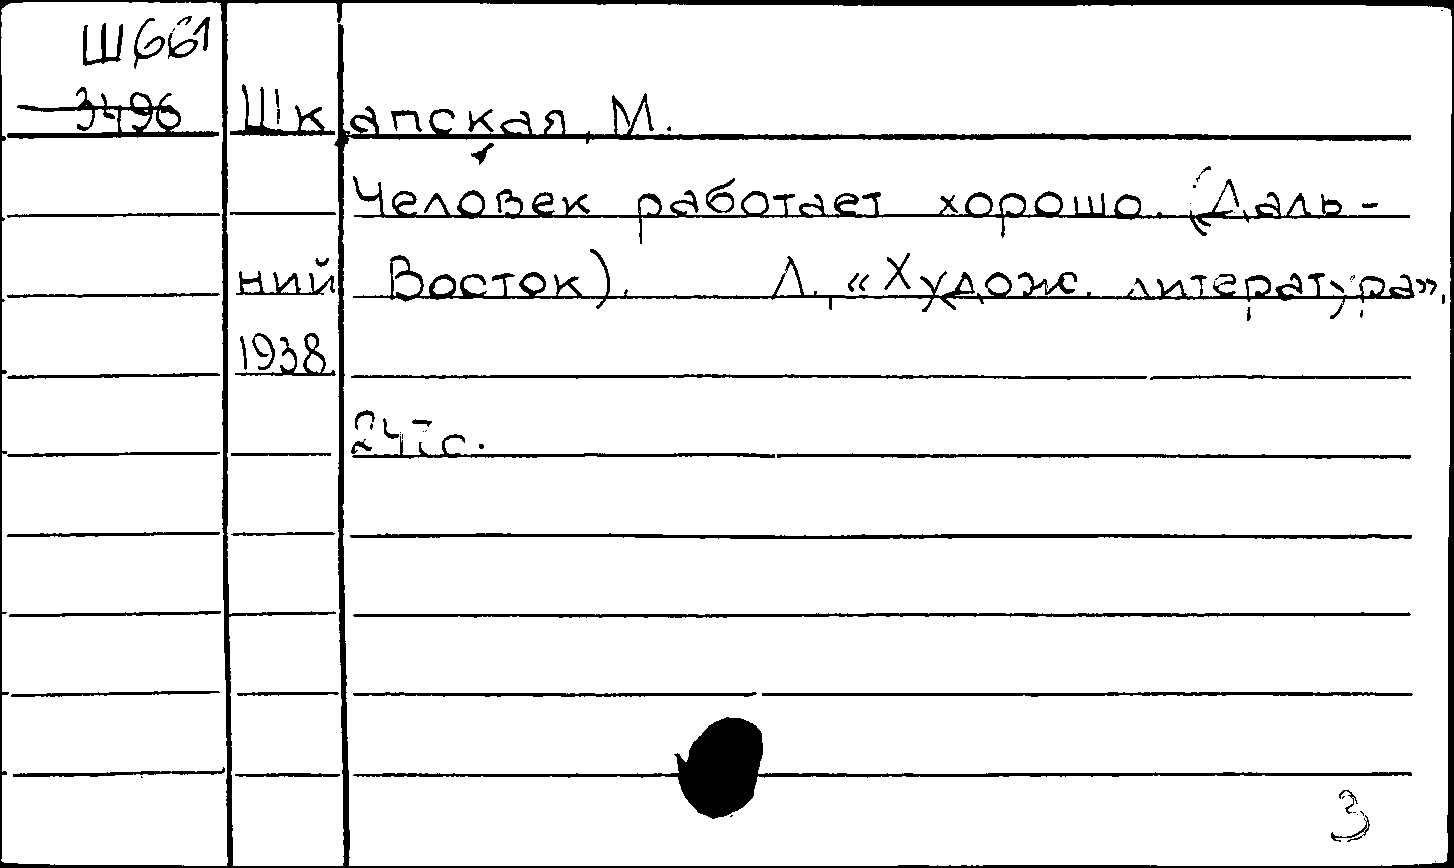 Ш661
3496 Шкапская, М.
Человек работает хорошо. (Даль-
ний Восток). Л., «Худож. литература»,
1938.
247 с.
3